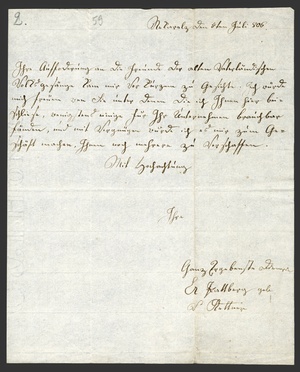 2.
59
den 8ten Juli 806
Ihre Aufforderung an die Freunde der alten Vaterländischen
Volksgesänge kam mir vor Kurzem zu Gesichte. Ich würde
mich freuen wenn die unter denen die ich Ihnen hier bey
schliese, wenigstens einige für Ihr Unternehmen brauchbar
fänden, und mit Vergnügen würde ich es mir zum Ge
schäft machen Ihnen noch mehrere zu verschaffen.
Mit Hochachtung
Ihre
Ganz Ergebenste
geb.